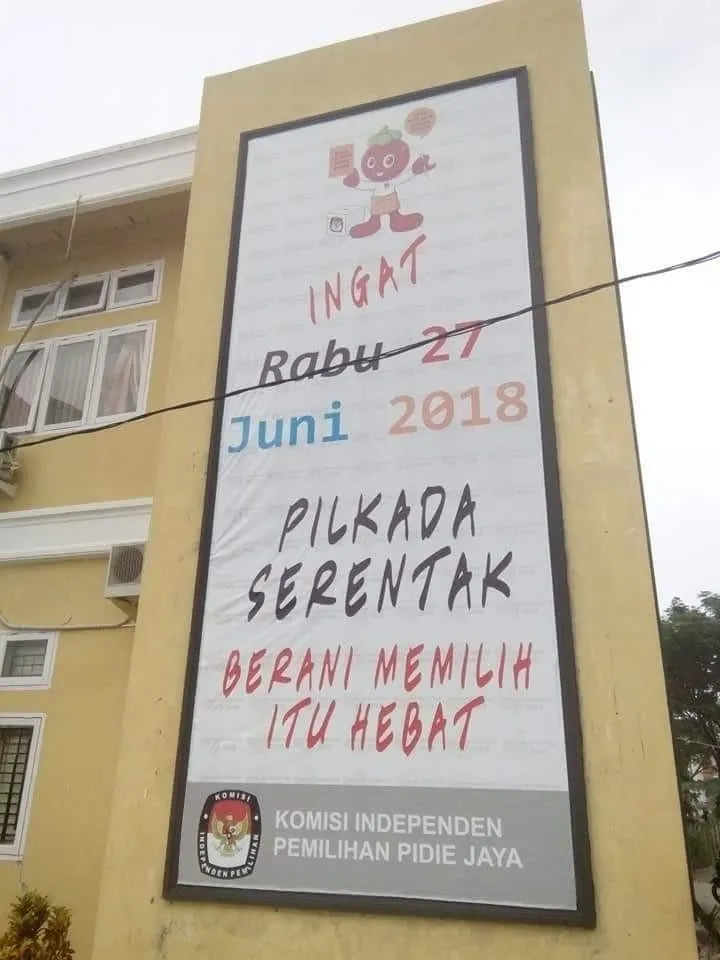 INGAT
Rabu 27
Juni 2018
PILKADA
SERENTAK
BERANI MEMILIH
ITU HEBAT
KOMISI
INDEPENDEN PEMILIHAN
KOMISI INDEPENDEN
PEMILIHAN PIDIE JAYA